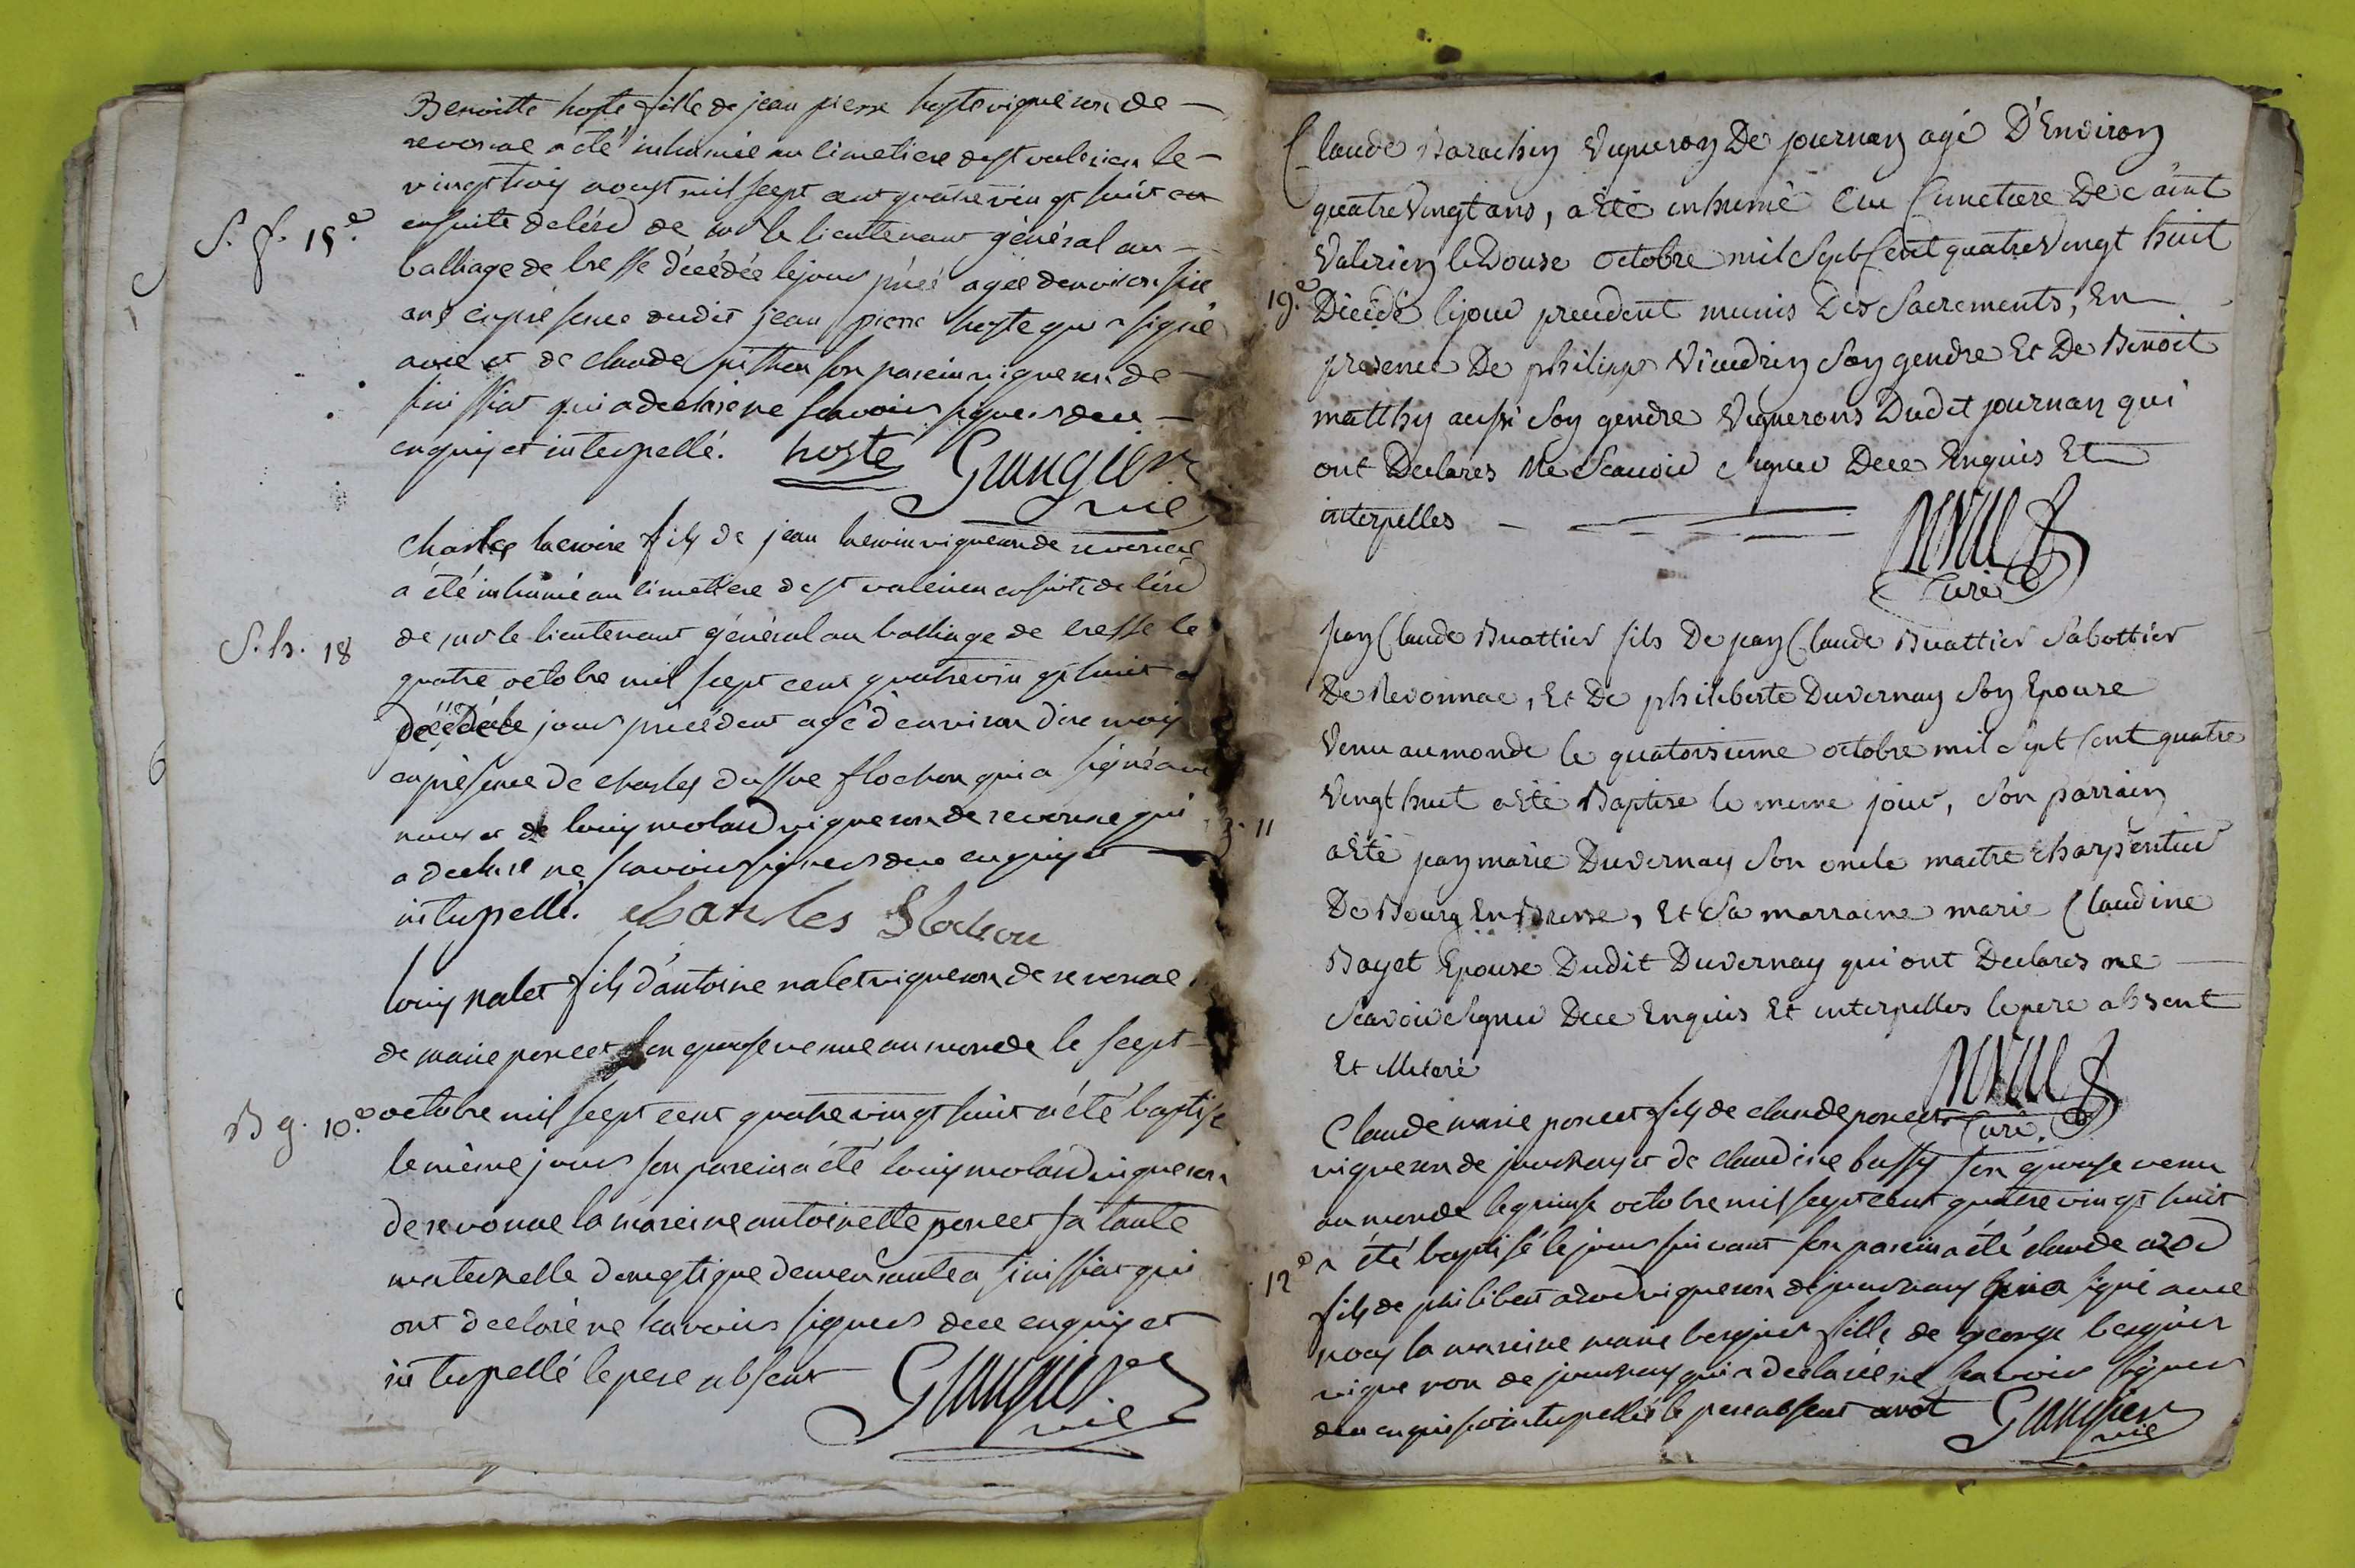 Benoitte hoste fille de jean pierre hoste vigneron de
revonnac a été inhumée au cimetiere de st valerien le
vingt trois aoust mil sept cent quatre vingt huit en
S. f. 15.e
ensuite de l'ord de mr le lieutenant général au
balliage de bresse décédée le jour préc agée d'environ six
ans en présence dudit jean pierre hoste qui a signé
avec et de claude son parein vigneron de
qui a declaré ne scavoir signer de ce
enquis et interpellé. hoste Grangier
vic
Charles lacroix fils de jean lacroix vigneron de revonnac
a été inhumé au cimetiere de st valerien ensuite de l'ord
S. h. 18
de mr le lieutenant général au balliage de bresse le
quatre octobre mil sept cent quatre vingt huit
décédé le jour précédent agé d'environ dix mois
en présence de charles flochon qui a signé avec
nous et de louis molard vigneron de revonnac qui
a declaré ne scavoir signer de ce enquis et
interpellé. charles flochon
louis nalet fils d'antoine nalet vigneron de revonnac
de marie poncet son epouse venue au monde le sept
B g. 10.e
octobre mil sept cent quatre vingt huit a été baptisé
le même jour son parein a été louis molard vigneron
de revonnac la mareine antoinette poncet sa tante
maternelle domestique demeurante a qui
ont declaré ne scavoir signer de ce enquis et
interpellé le pere absent Grangier
vic
Claude Barachin Vigneron De journan agé D'Environ
quatre Vingt ans, a Eté inhumé au Cimetiere De Saint
Valerien le Douse octobre mil Sept Cent quatre Vingt huit
19.e
Décédé le jour precedent munis Des Sacrements, En
presence De philippe Vieudrin Son gendre Et De Benoit
matthy aussi Son gendre Vignerons Dudit journan qui
ont Declarés Ne Scavoir Signer De ce Enquis Et
interpelles
Curé
jean Claude Buattier fils De jean Claude Buattier Sabottier
De Revonnac, Et De philiberte Duvernay Son Epouse
Venu au monde le quatorsieme octobre mil Sept Cent quatre
Vingt huit a Eté Baptisé le meme jour, Son parrain
11
a Eté jean marie Duvernay Son oncle maitre charpentier
De Bourg En Bresse, Et Sa marraine marie Claudine
Bayet Epouse Dudit Duvernay qui ont Declarés ne
Scavoir Signer De ce Enquis Et interpelles le pere absent
Et
Curé.
Claude marie poncet fils de claude poncet
vigneron de journan et de claudine bussy son epouse venu
au monde le quinse octobre mil sept cent quatre vingt huit
12.e
a été baptisé le jour suivant son parein a été claude
fils de philibert vigneron de journan qui a signé avec
nous la mareine marie berguier fille de george berguier
vigneron de journan qui a declaré ne scavoir signer
de ce enquise et interpellée le pere absent Grangier
vic